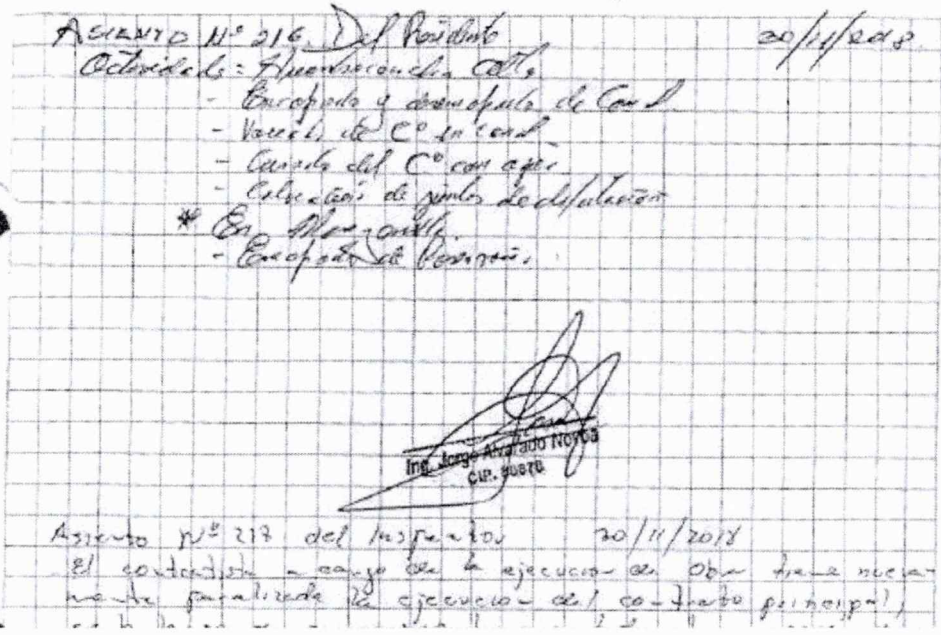 ASIENTO Nº 216 Del Residente 20/11/2018
Actividades =
- Encofrado y desencofrado de Canal
- Vaceado de Cº en canal
- Curado del Cº con agua
- Colocación de juntas de dilatación
* En
- Encofrado de
Ing. Jorge Alvarado Noyoa
CIP.
Asiento Nº 217 del Inspector 20/11/2018
El contratista a cargo de la ejecucion de Obra tiene nueva-
mente paralizada la ejecucion del contrato principal,